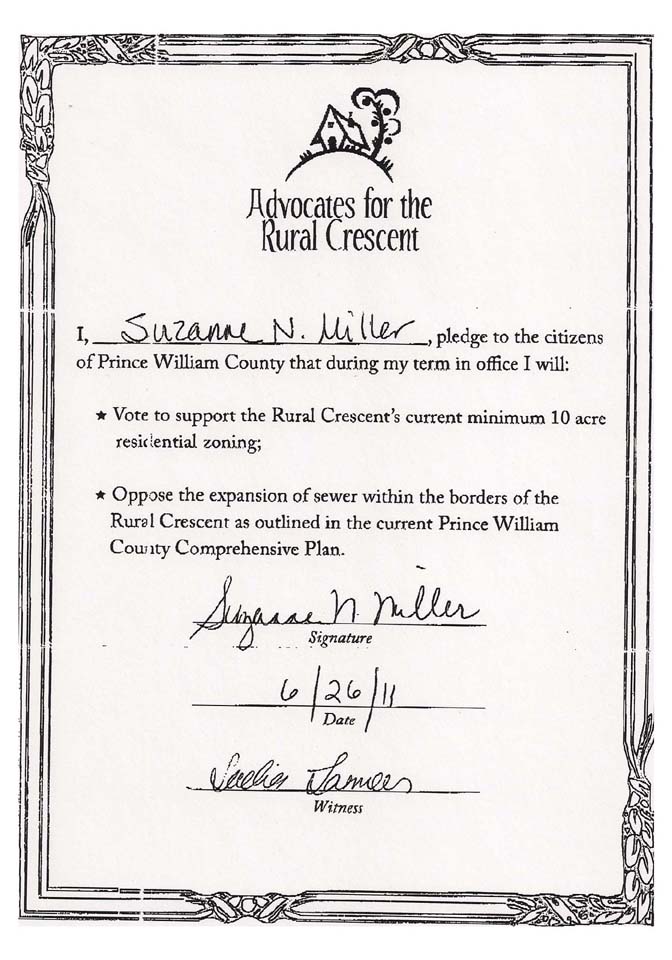 Advocates for the
Rural Crescent
I, Suzanne N. Miller, pledge to the citizens
of Prince William County that during my term in office I will:
★ Vote to support the Rural Crescent's current minimum 10 acre
residential zoning;
★ Oppose the expansion of sewer within the borders of the
Rural Crescent as outlined in the current Prince William
County Comprehensive Plan.
Suzanne N. Miller
Signature
6/26/11
Date
Witness